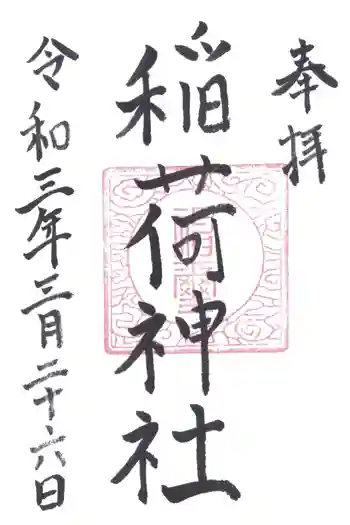 奉拝
稲荷神社
令和三年三月二十六日